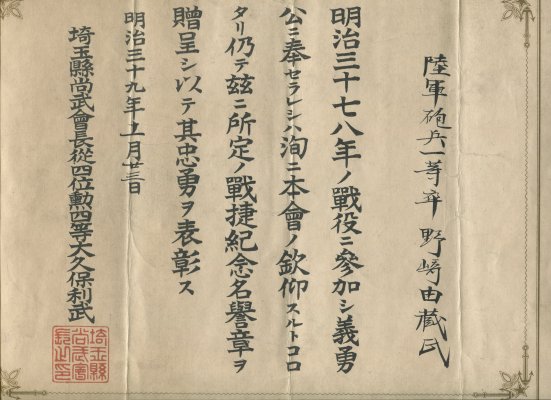 陸軍砲兵一等卒野﨑由藏氏
明治三十七八年ノ戰役ニ參加シ義勇
公ニ奉セラレシハ洵ニ本會ノ欽仰スルトコロ
タリ仍テ玆ニ所定ノ戰捷紀念名譽章ヲ
贈呈シ以テ其忠勇ヲ表彰ス
明治三十九年五月廿三日
埼玉縣尚武會長從四位勳四等大久保利武
埼玉縣
尚武會
長之印